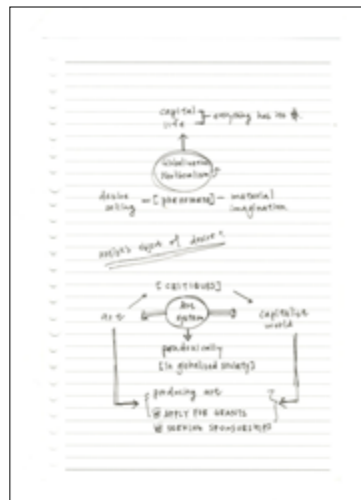 capital
life } everything has its $.
Globalization
desire selling - [phenomena] - material imagination
object of desire?
[CRITIQUES]
art
Art system
capitalist world
paradoxically
[in globalized society]
producing art
APPLY FOR GRANTS
SEEKING SPONSORSHIPS